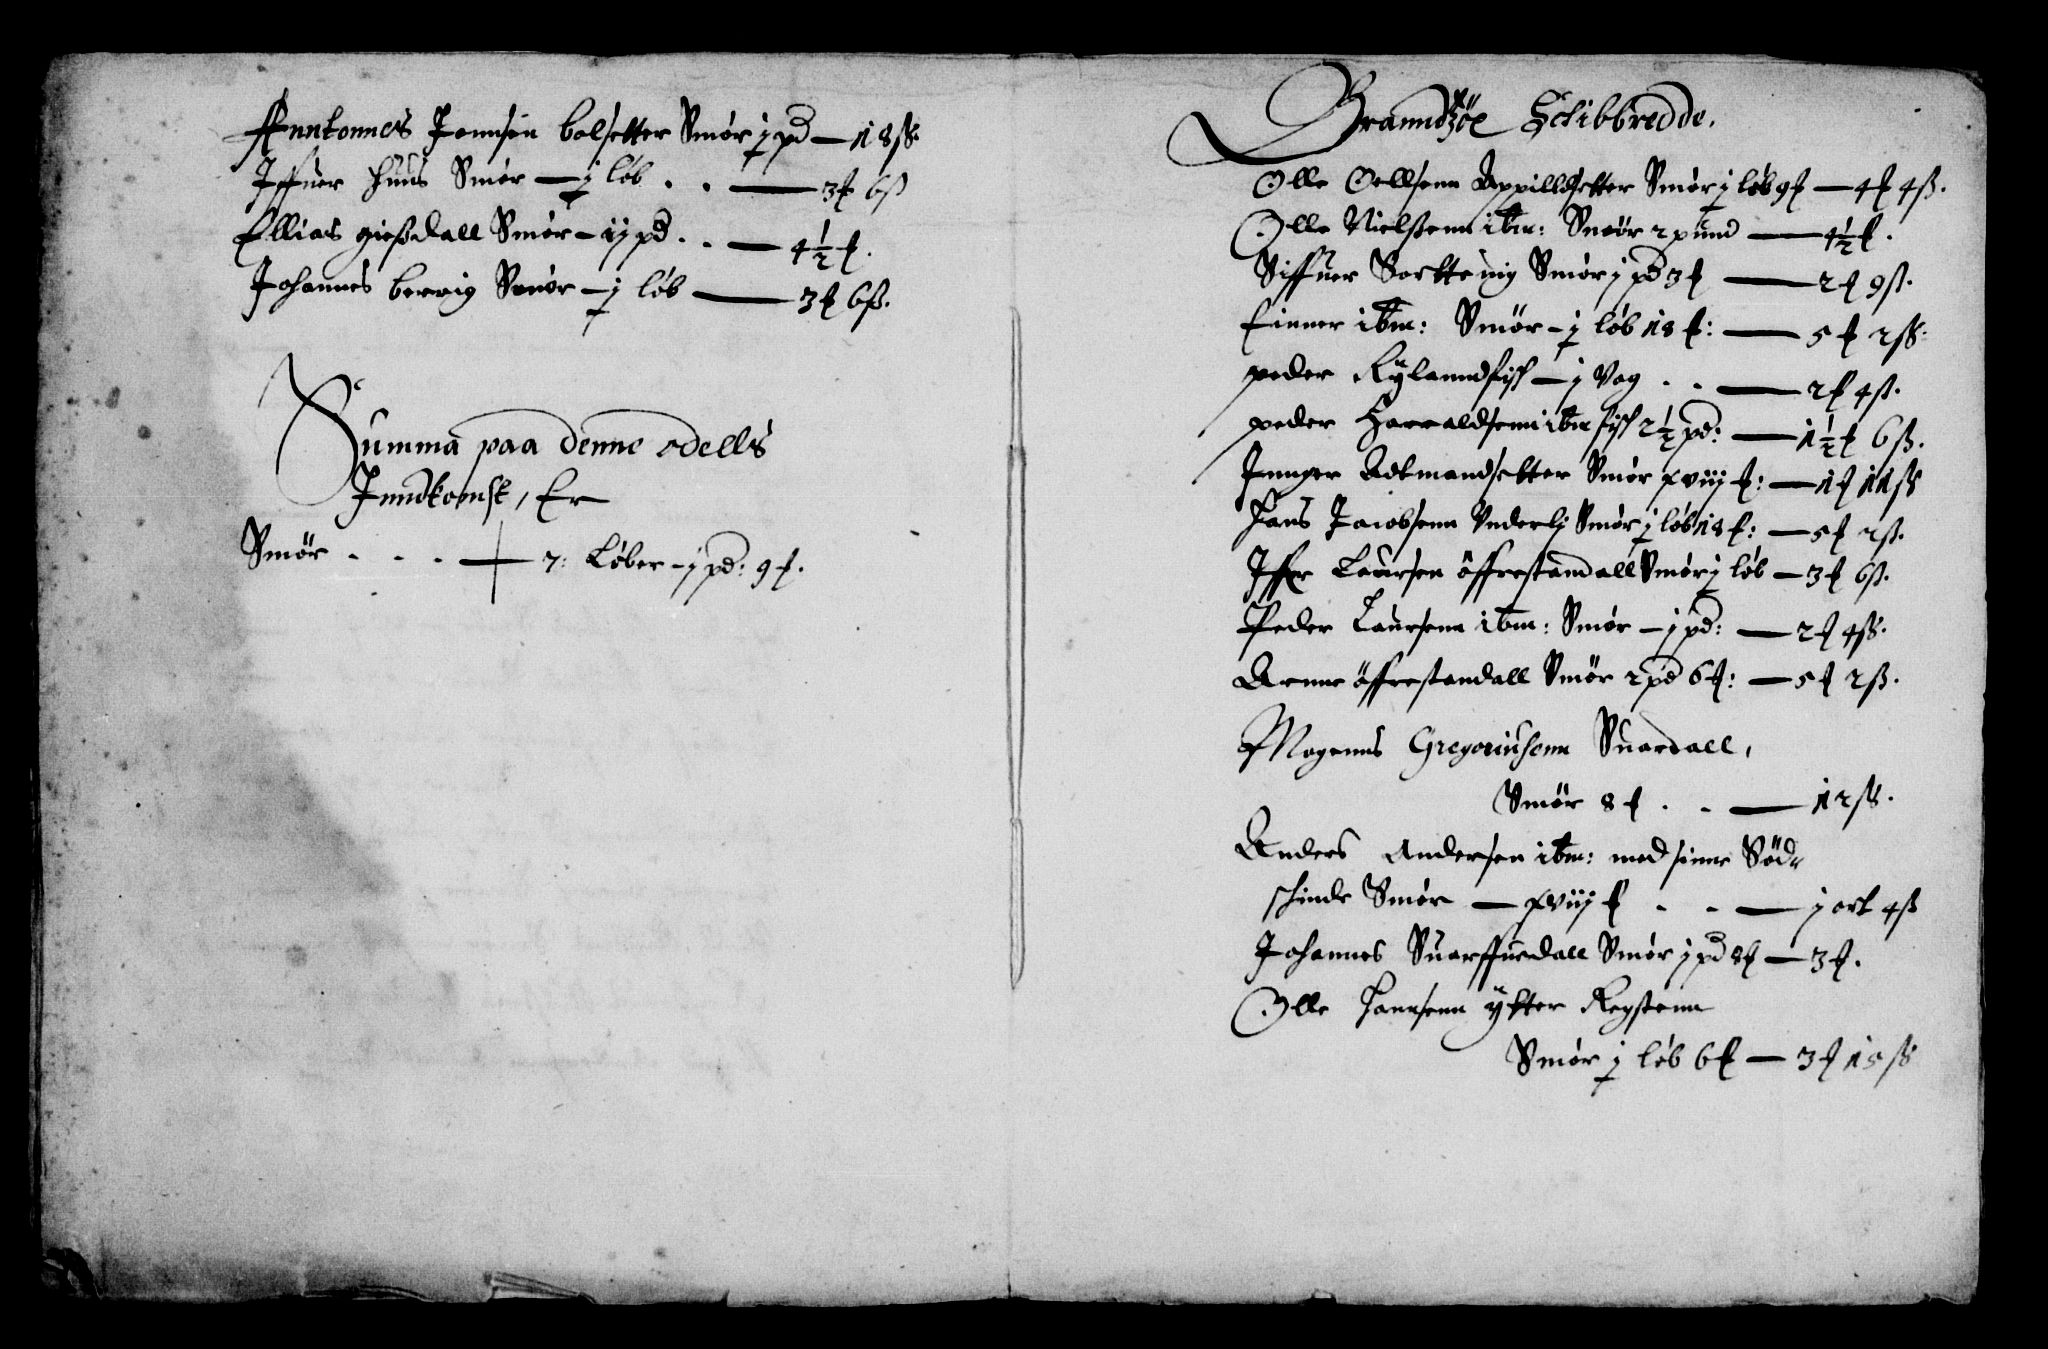 Anntonnes Jonnsen bolsetter Smør j pd — 18 ß.
Iffuer Huus Smør — j løb . . — 3 ₰ 6 ß
Ellias giesdall Smør — ij pd . . — 4½ ₰.
Johannes berrig Smør — j løb — 3 ₰ 6 ß.
Summa paa denne odells
Inndkomst, Er
Smør . . . . — 7: Løber — j pd: 9 ₰.
Branndzöe Schibbredde.
Olle Oellsenn Appilldsetter Smør j løb 9 ₰ — 4 ₰ 4 ß.
Olle Nielssenn ibm: Smör 2 pund — 4½ ₰.
Siffuer Smør j pd 3 ₰ — 2 ₰ 9 ß.
Einner ibm: Smør — j løb 18 ₰: — 5 ₰ 2 ß.
peder Rylannd fisk — j Vog . . — 2 ₰ 4 ß.
peder Harraldsenn ibm fisk 2½ pd: — 1½ ₰ 6 ß.
Innger Aakmandsetter Smør xviij ₰: — 1 ₰ 11 ß
Hans Jacobsenn Vnderli Smør j løb 18 ₰: — 5 ₰ 2 ß.
Iffer Laursen öffrestandall Smør j løb — 3 ₰ 6 ß.
Peder Laursenn ibm: Smør — j pd: — 2 ₰ 4 ß.
Arnne öffrestandall Smør 2 pd 6 ₰: — 5 ₰ 2 ß.
Mogenns Gregoriusenn Suardall,
Smør 8 ₰ . . — 12 ß.
Anders Andersen ibm: med sinne Sød-
schinde Smør — xviij ₰ . . — j ort 4 ß
Johannes Suarffuedall Smør j pd 8 ₰ — 3 ₰.
Olle Hannsenn ÿtter Regstenn
Smør j løb 6 ₰ — 3 ₰ 15 ß